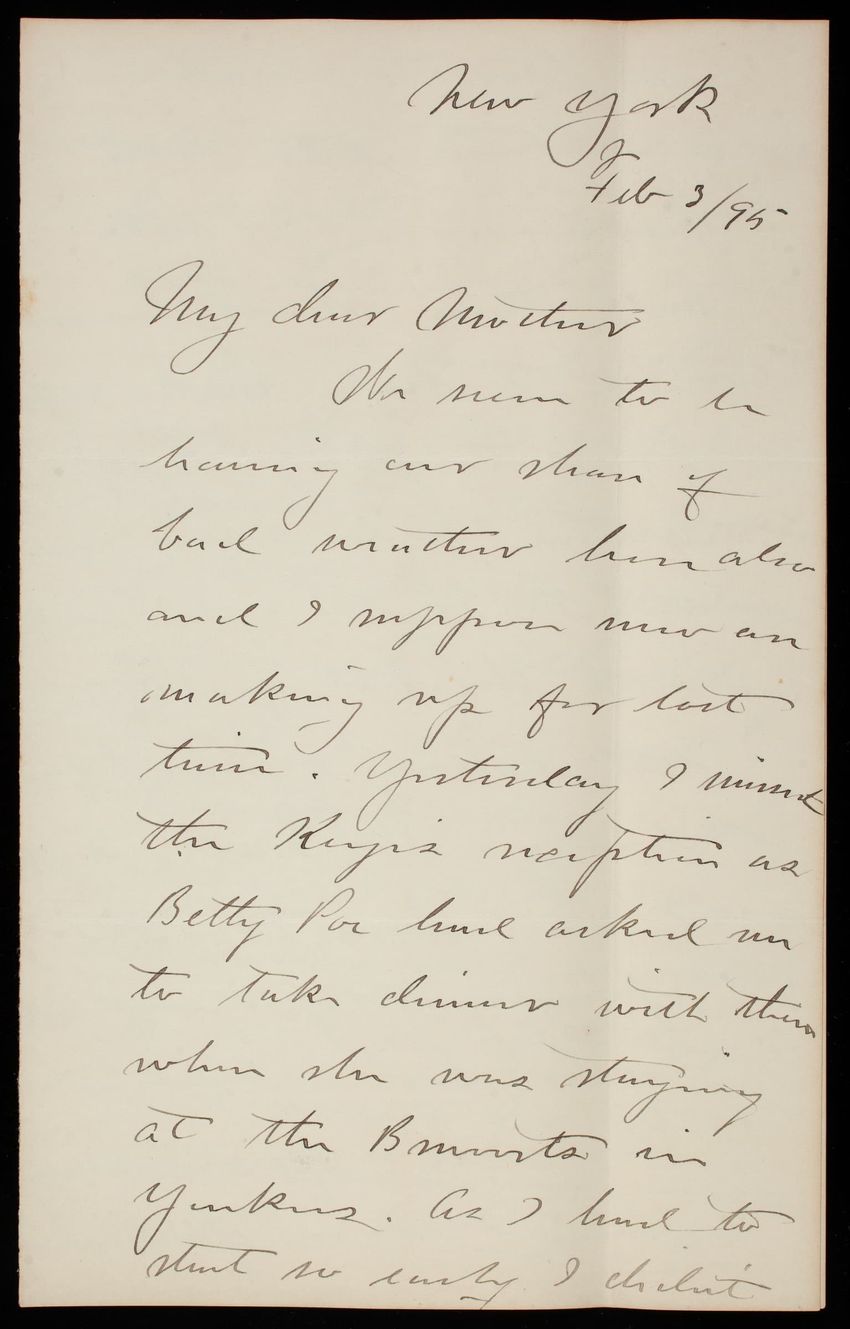 New York
Feb 3/95
My dear Mother
We seem to be
having our share of
bad weather here also
and I suppose now are
making up for lost
time. Yesterday I missed
the reception as
Betty Poe had asked me
to take dinner with them
where she was staying
at the in
Yonkers. As I had to
start so early I didn't